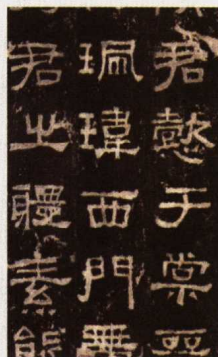 君懿于棠晉
珮瑋西門帶
君之體素能